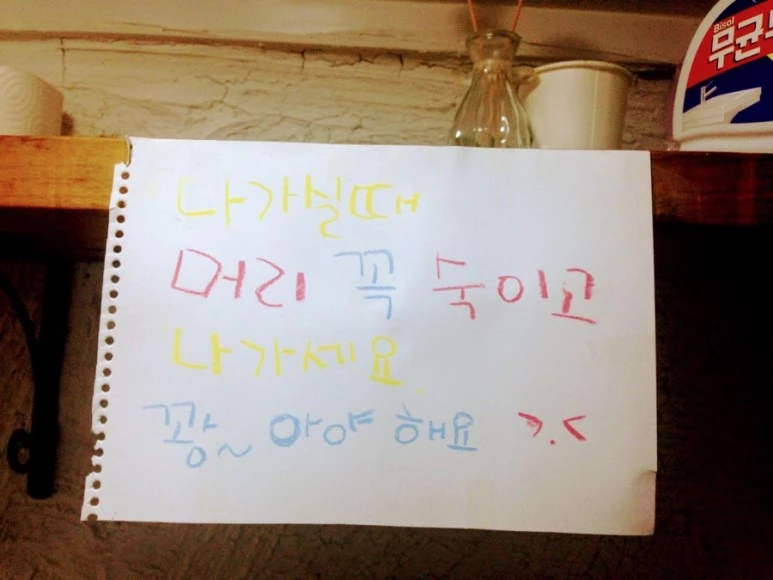 Bisol
무균
나가실때
머리 꼭 숙이고
나가세요
꽝~ 아야 해요 >.<